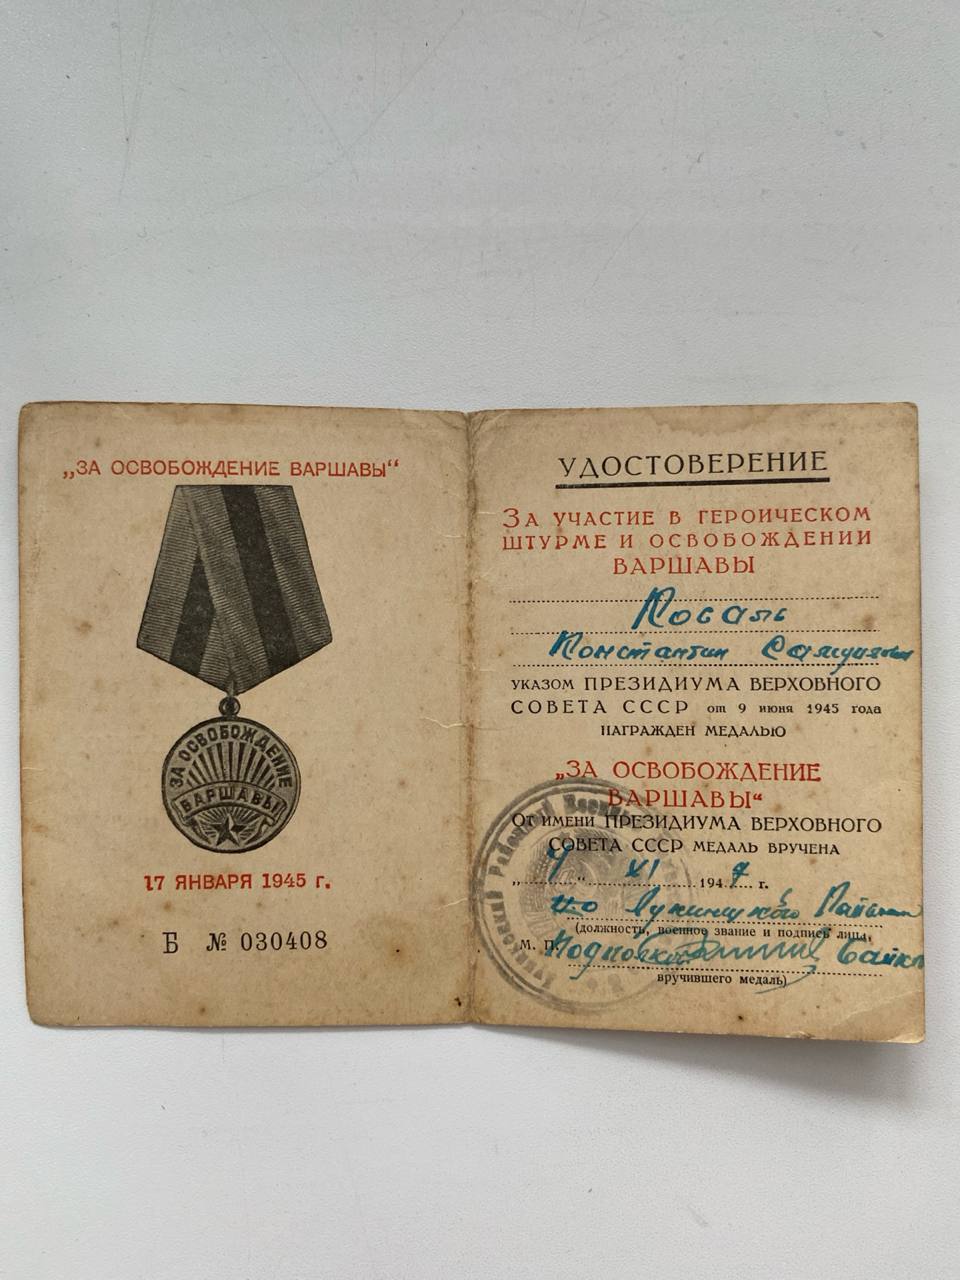 „ЗА ОСВОБОЖДЕНИЕ ВАРШАВЫ“
ЗА ОСВОБОЖДЕНИЕ
ВАРШАВЫ
17 ЯНВАРЯ 1945 г.
Б № 030408
УДОСТОВЕРЕНИЕ
ЗА УЧАСТИЕ В ГЕРОИЧЕСКОМ
ШТУРМЕ И ОСВОБОЖДЕНИИ
ВАРШАВЫ
Коваль
Константин
УКАЗОМ ПРЕЗИДИУМА ВЕРХОВНОГО
СОВЕТА СССР от 9 июня 1945 года
НАГРАЖДЕН МЕДАЛЬЮ
„ЗА ОСВОБОЖДЕНИЕ
ВАРШАВЫ“
ОТ ИМЕНИ ПРЕЗИДИУМА ВЕРХОВНОГО
СОВЕТА СССР МЕДАЛЬ ВРУЧЕНА
„4“ XI 1947 г.
(должность, военное звание и подпись лица,
М. П.
вручившего медаль)